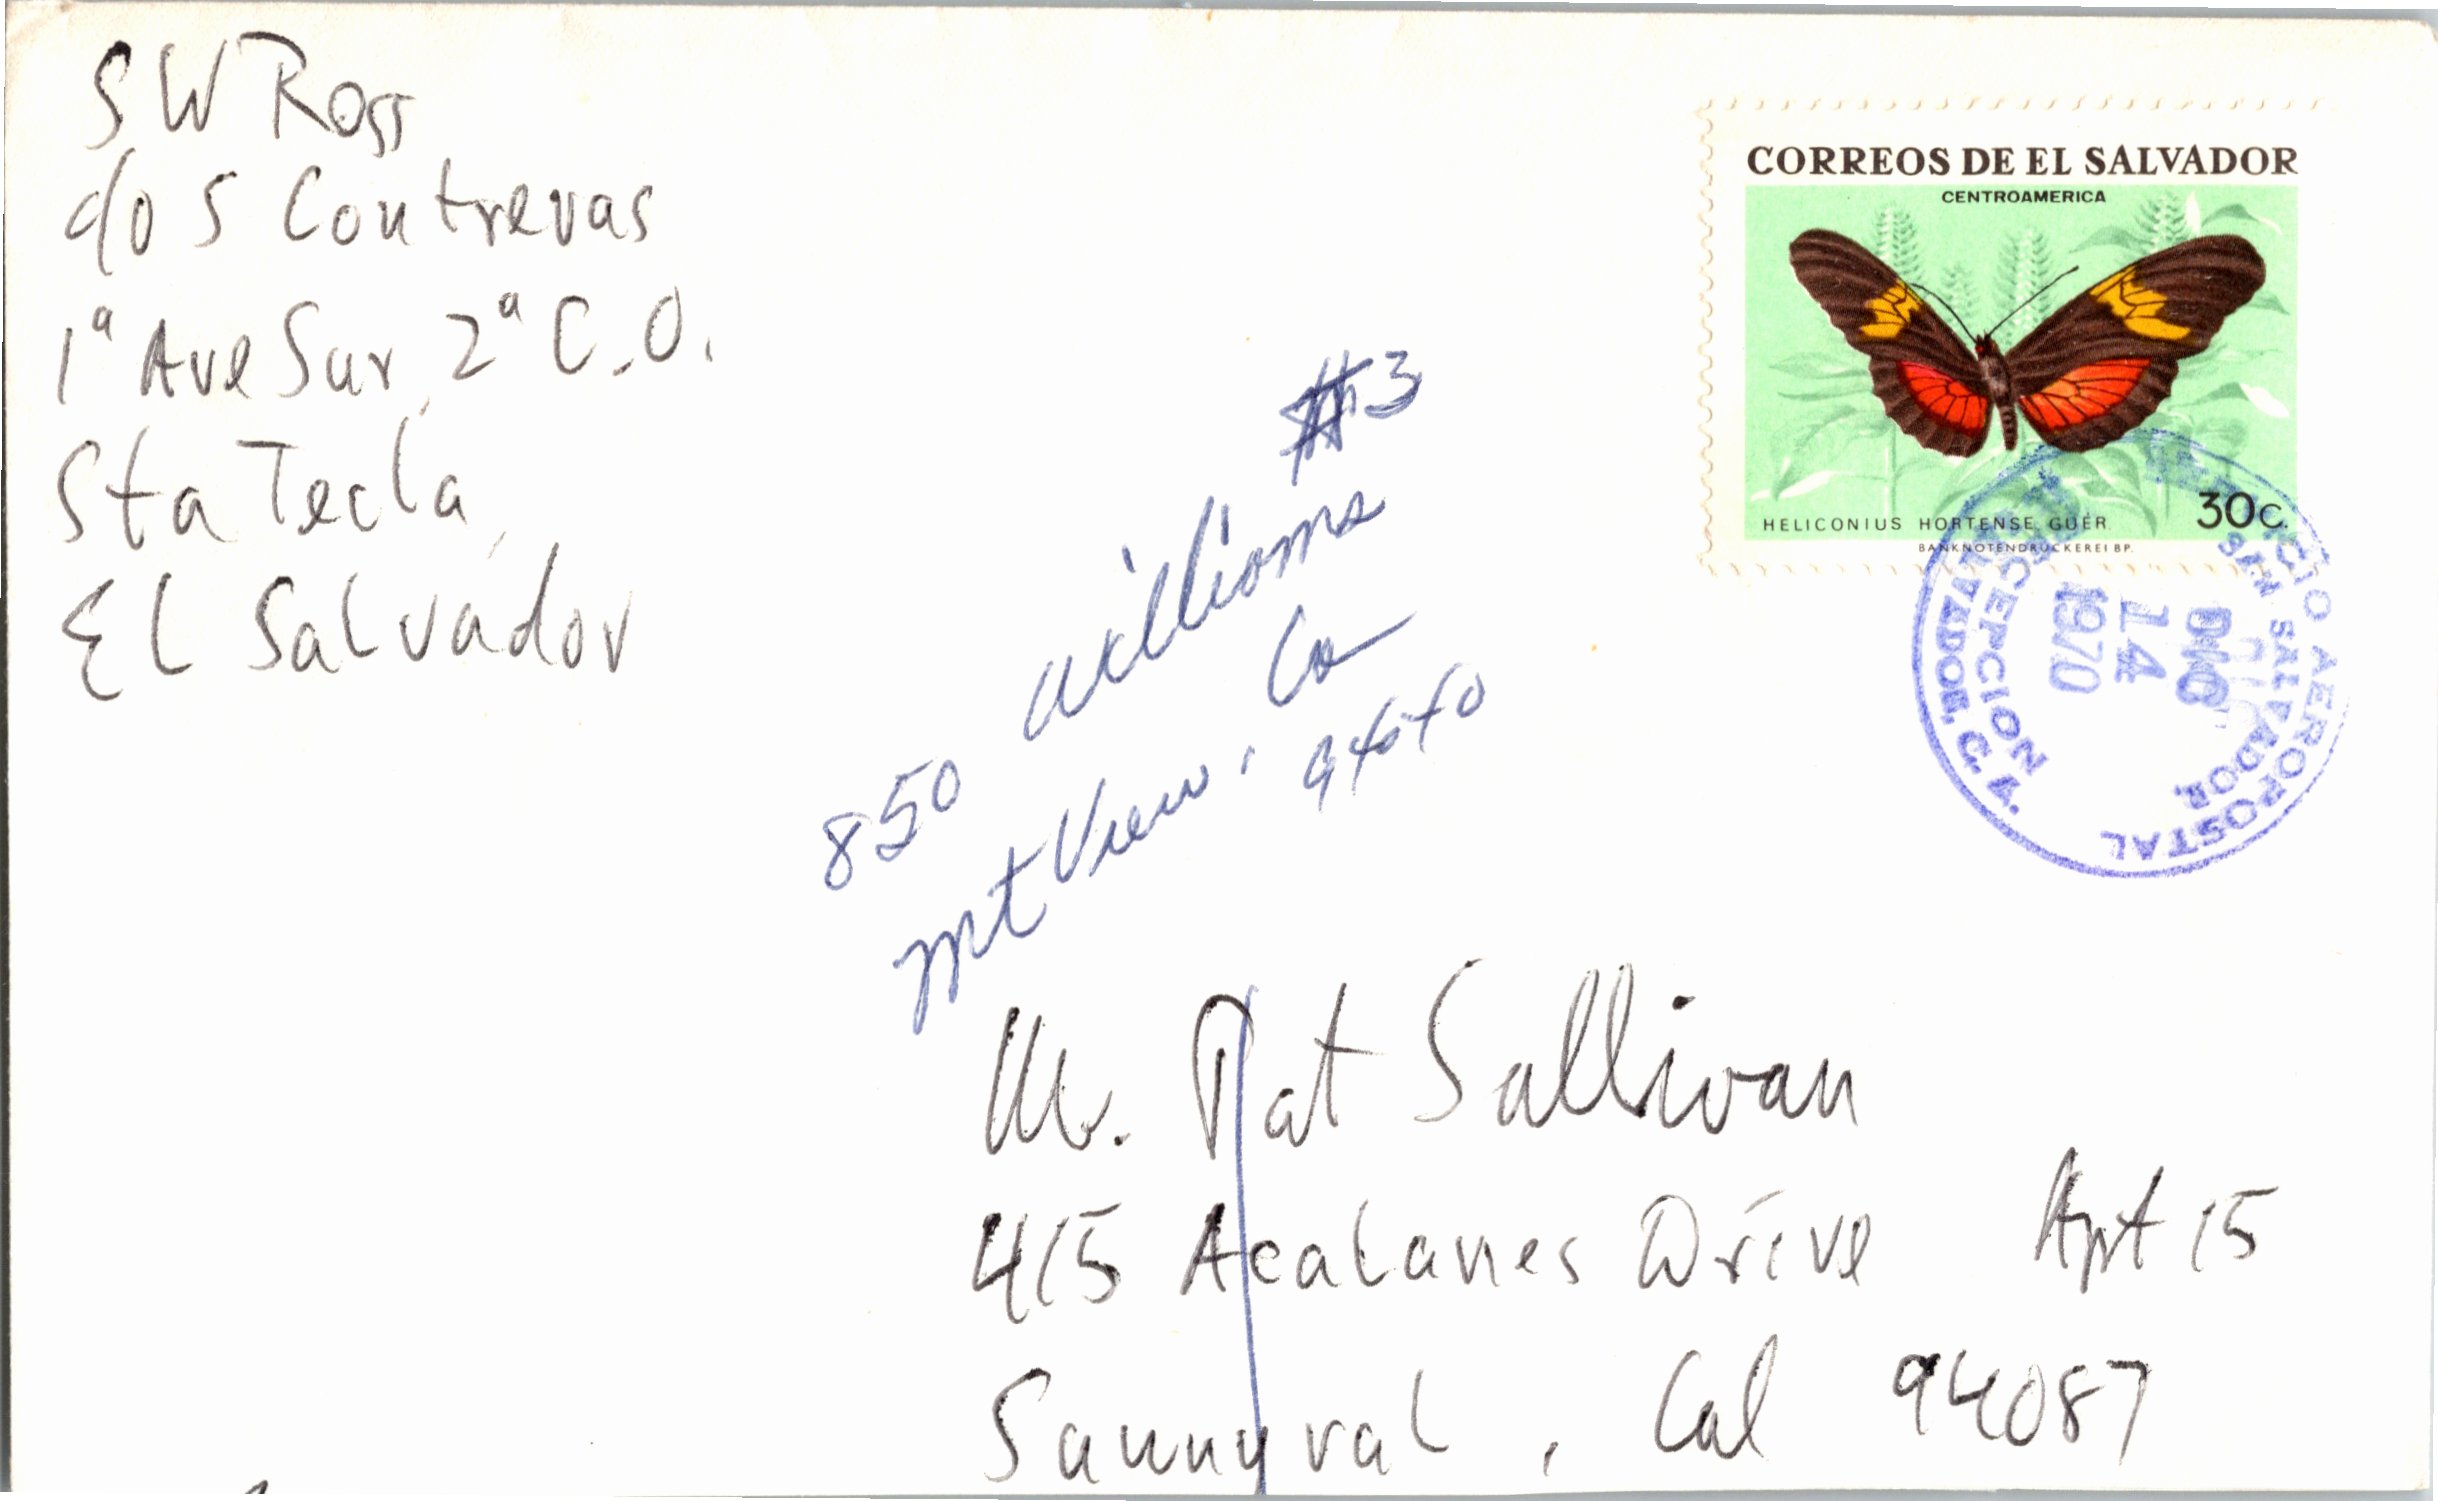 SW Ross
c/o S Contrevas
1ª Ave Sur, 2ª C.O.
Sta Tecla,
El Salvador
CORREOS DE EL SALVADOR
CENTROAMERICA
HELICONIUS HORTENSE. GUÉR.
30c.
BANKNOTENDRUCKEREI BP.
AEROPOSTAL
SAN SALVADOR.
RECEPCION
SALVADOR, C. A.
14
1970
#3
850 Williams
Mt View, 94040
Mr. Pat Sullivan
415 Acalanes Drive Apt 15
Sunnyval, Cal 94087